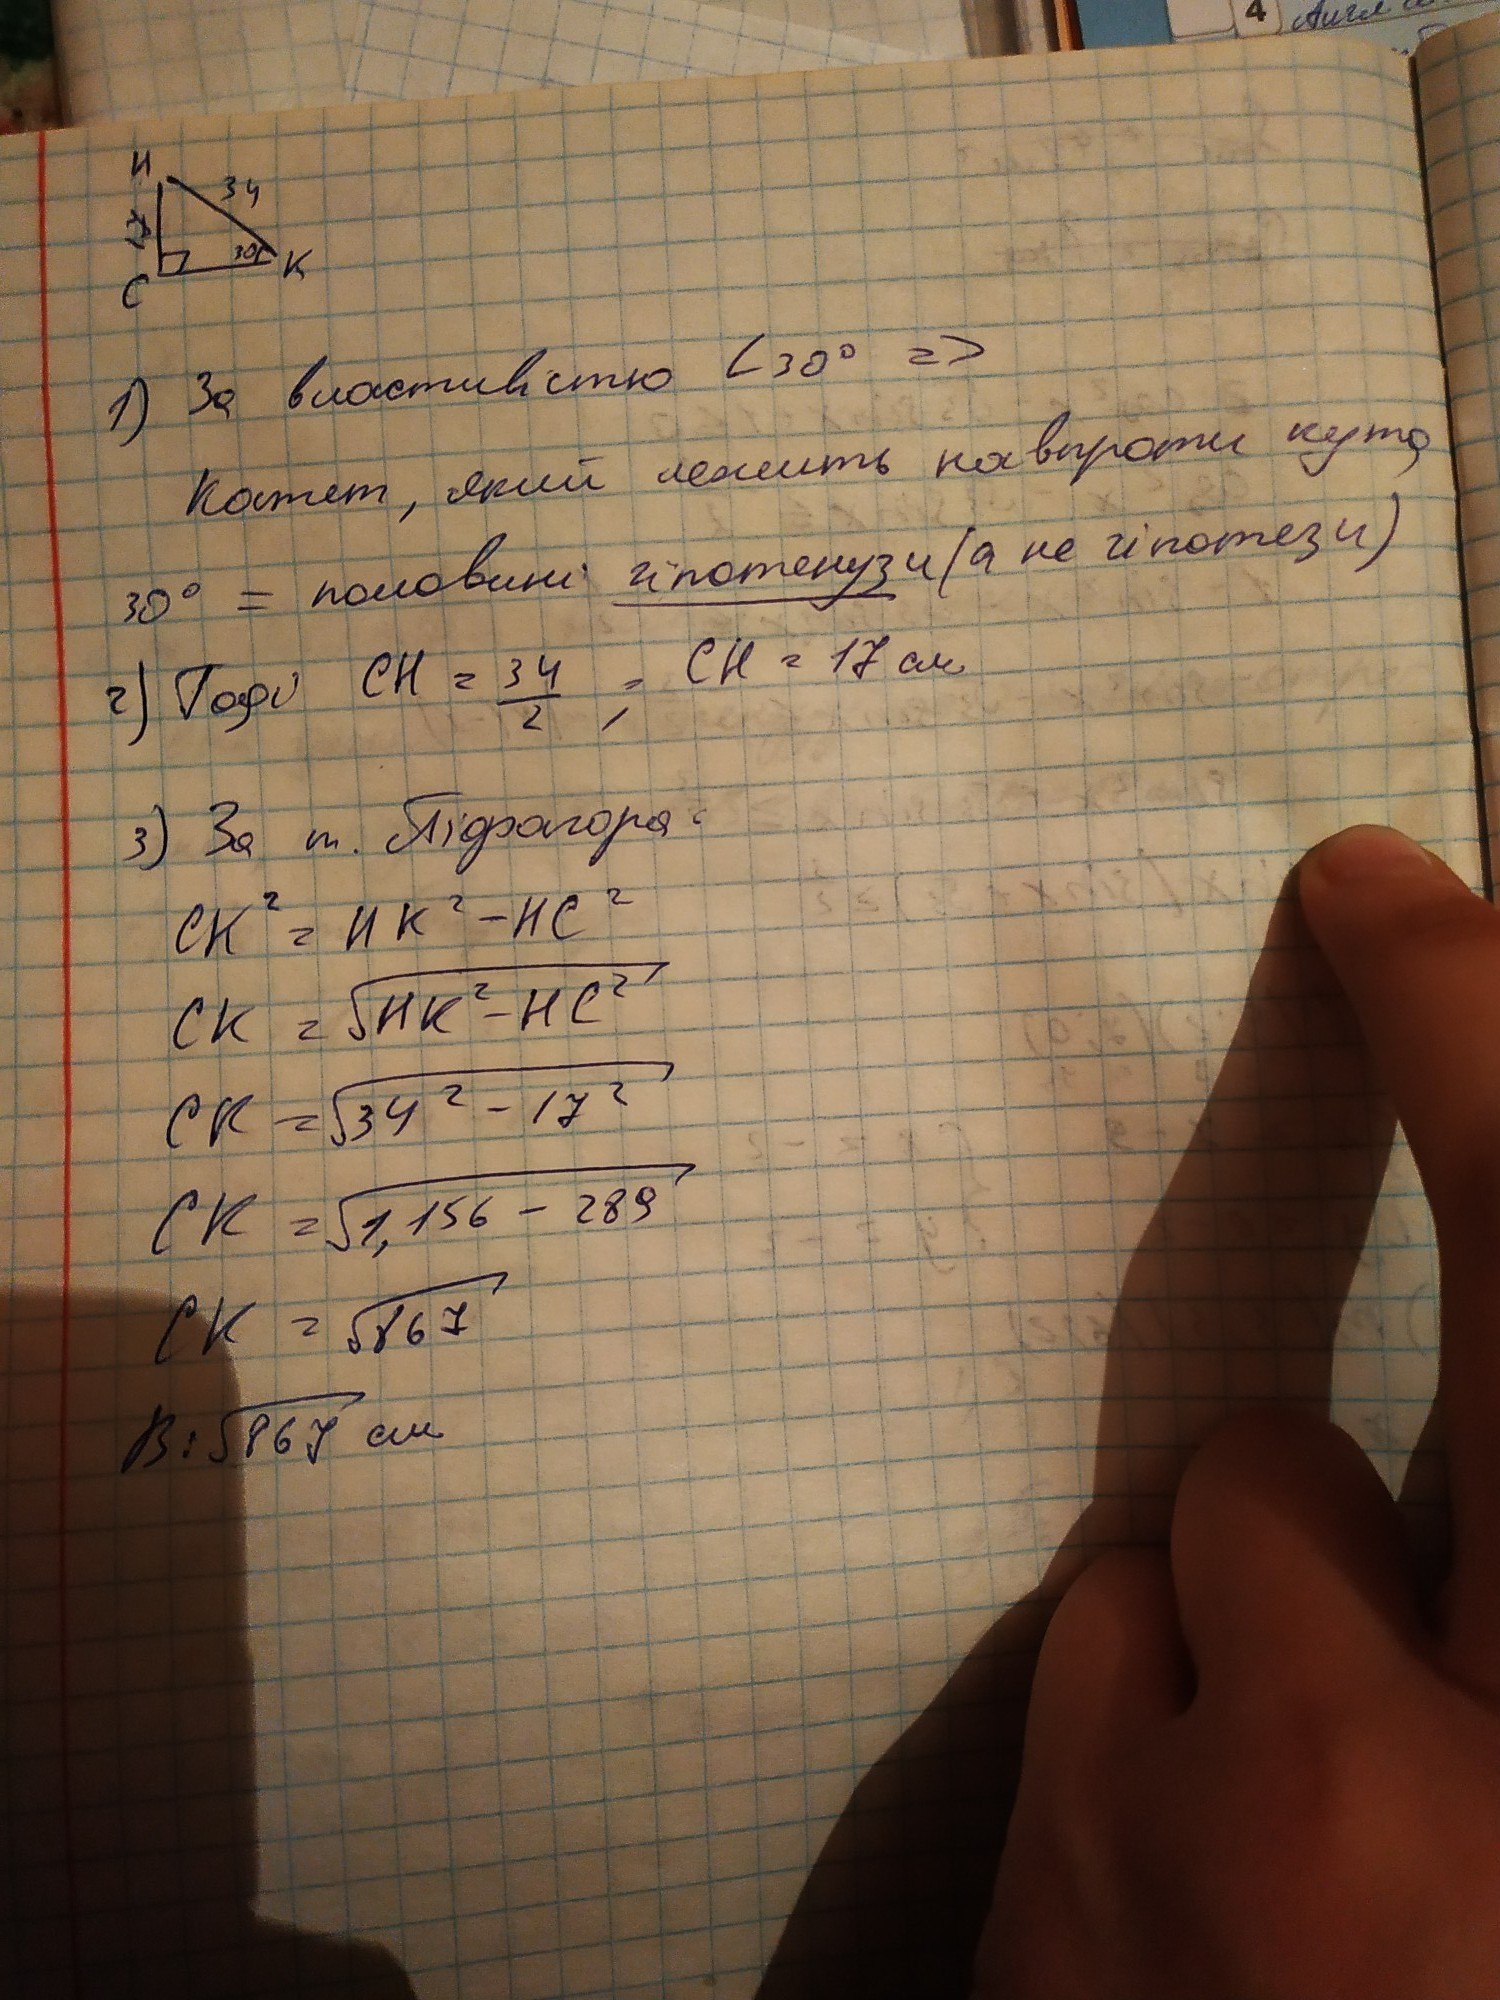 4
Н
34
17
30°
С
К
1) За властивістю (30° =>
Катет, який лежить навпроти кута
30° = половині гіпотенузи (а не гіпотези)
2) Тоді СН = 34/2 , СН = 17 см
3) За т. Піфагора:
СК² = НК² - НС²
СК = √НК² - НС²
СК = √34² - 17²
СК = √1,156 - 289
СК = √867
В: √867 см